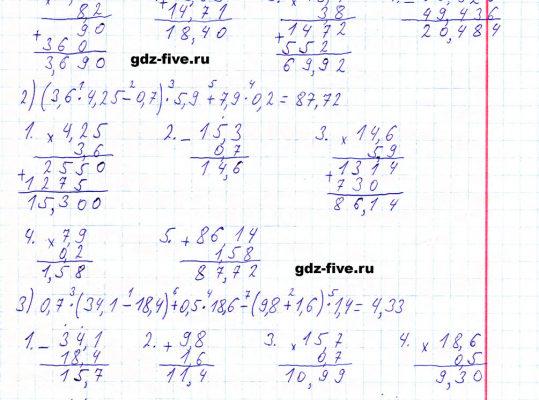 8,2 + 14,71 3,8 49,436
+ 90 18,40 + 1472 20,484
360 552
3,690 69,92
gdz-five.ru
2) (3,6 · 4,25 - 0,7) · 5,9 + 7,9 · 0,2 = 87,72
1. × 4,25 2. - 15,3 3. × 14,6
3,6 0,7 5,9
+ 2550 14,6 + 1314
1275 730
15,300 86,14
4. × 7,9 5. + 86,14
0,2 1,58
1,58 87,72
gdz-five.ru
3) 0,7 · (34,1 - 18,4) + 0,5 · 18,6 - (9,8 + 1,6) · 1,4 = 4,33
1. - 34,1 2. + 9,8 3. × 15,7 4. × 18,6
18,4 1,6 0,7 0,5
15,7 11,4 10,99 9,30